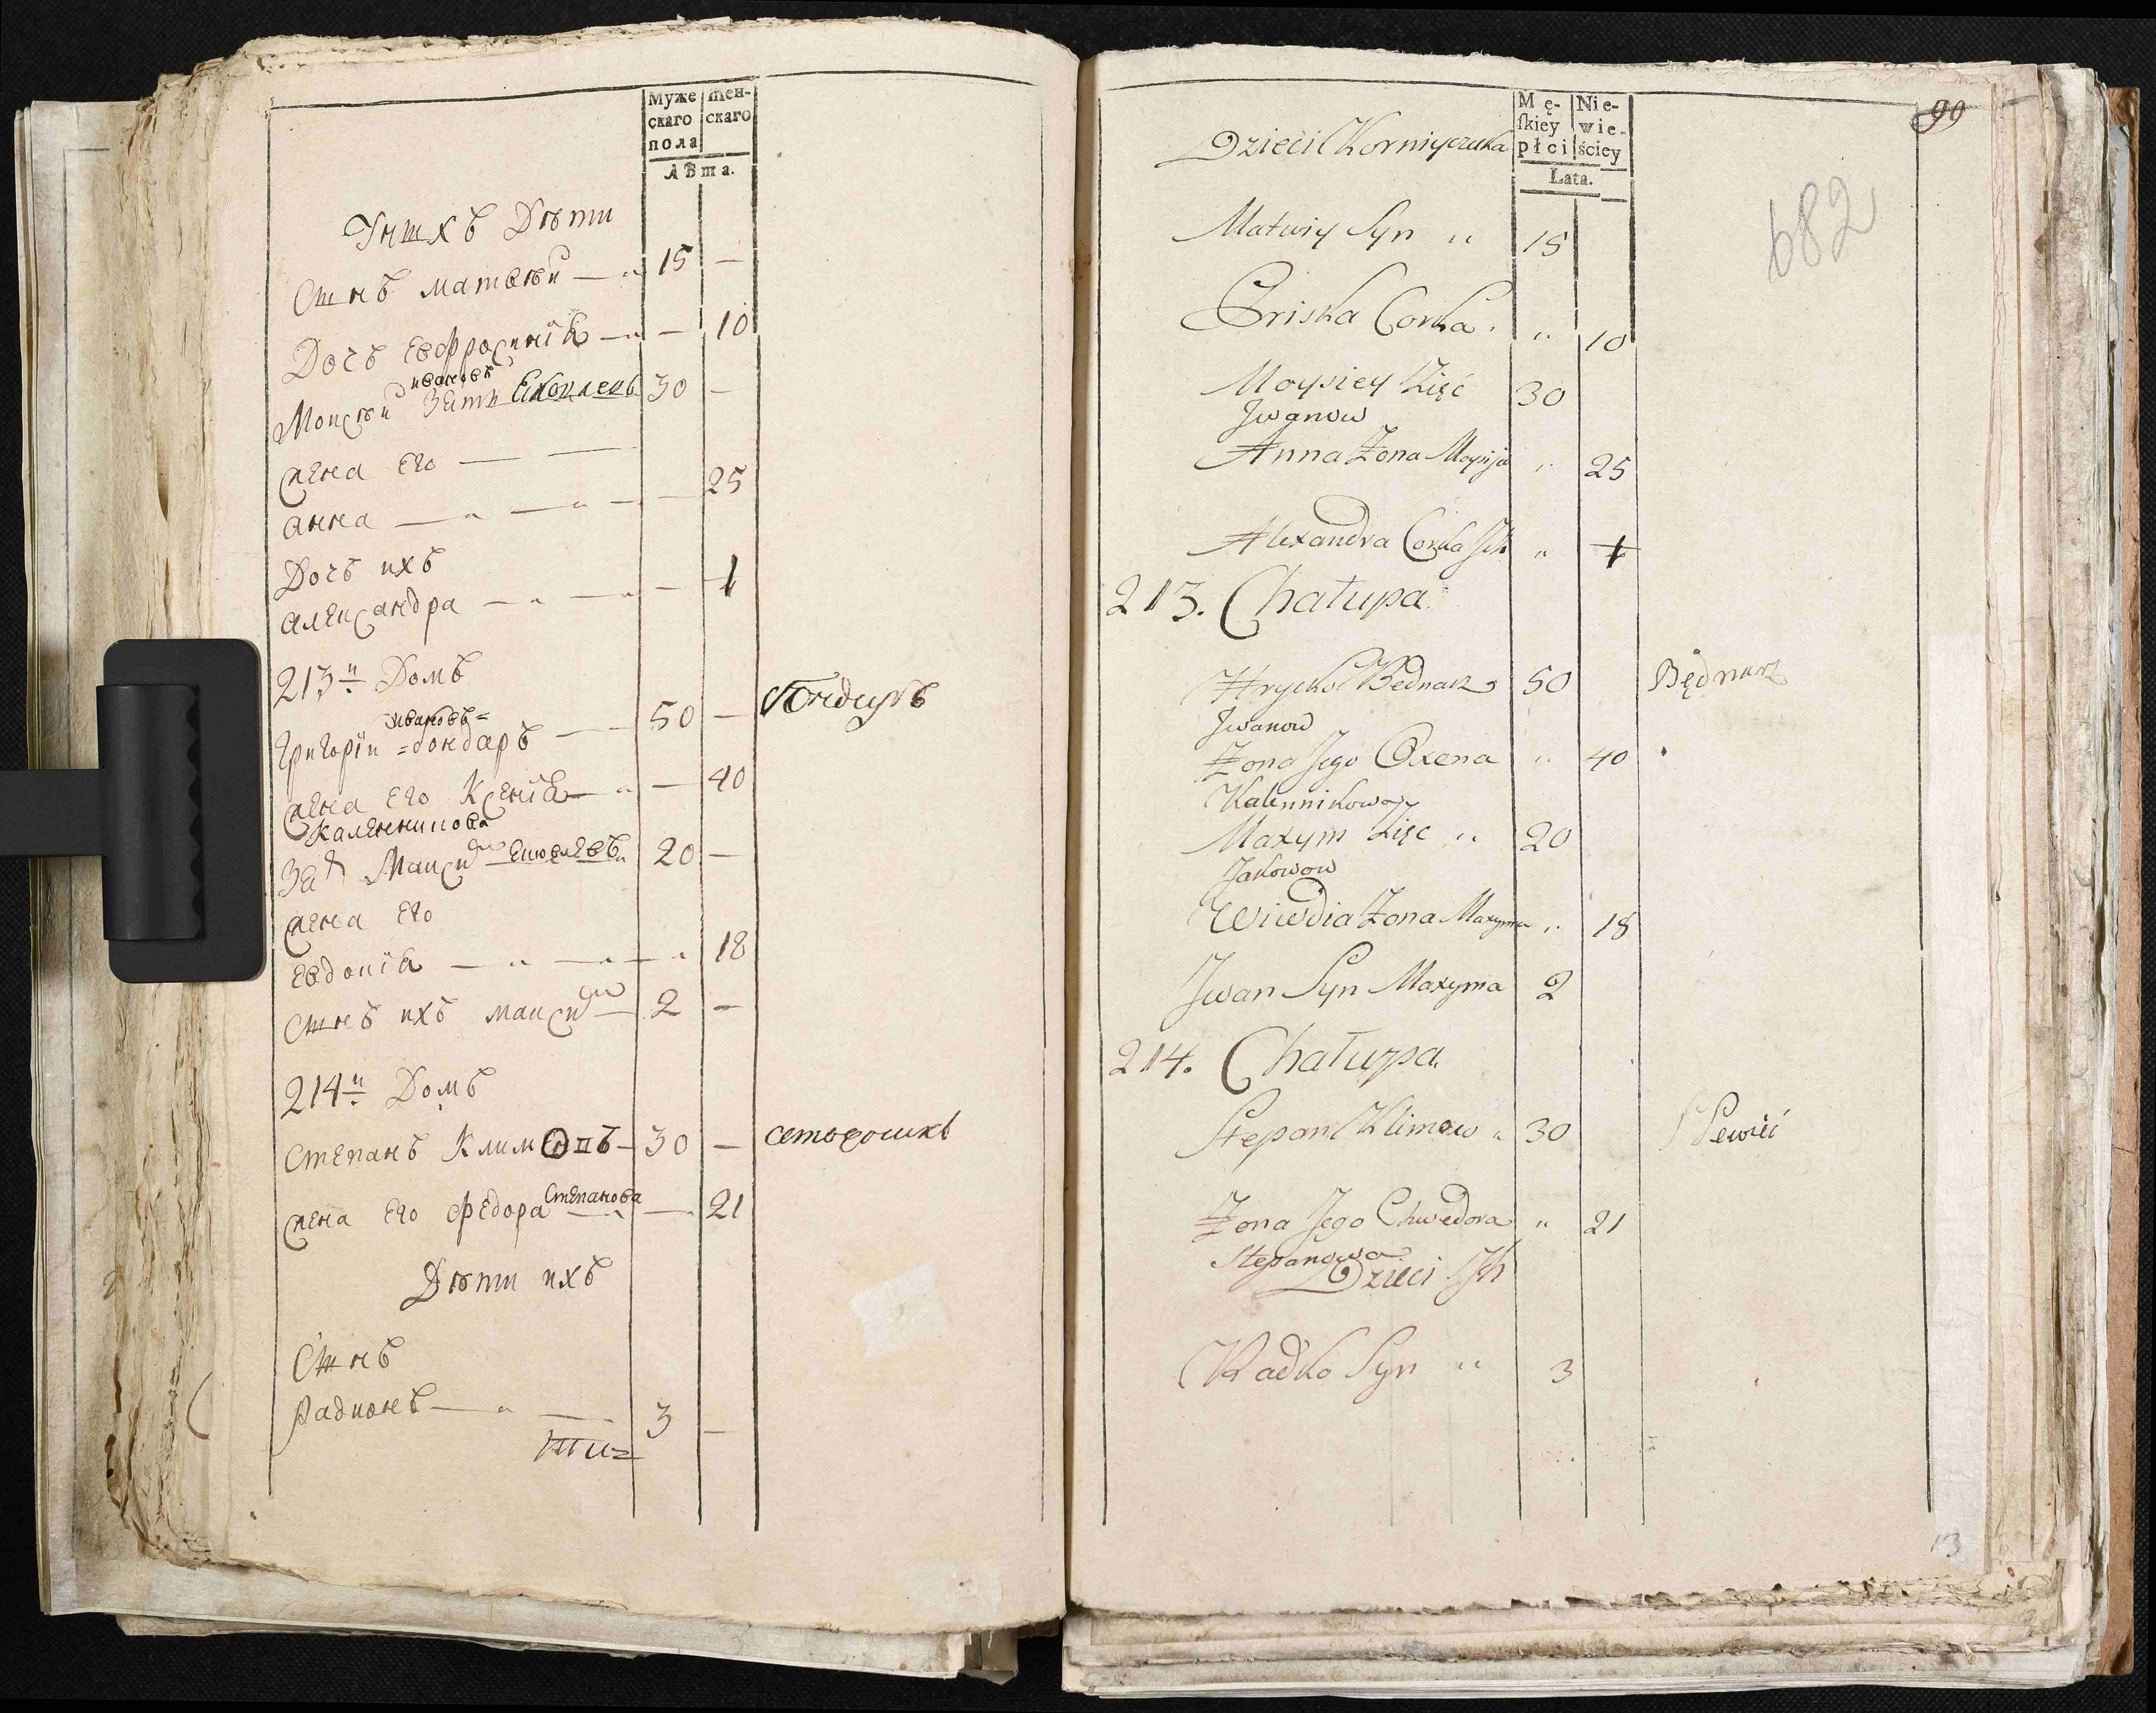 Муже
скаго
пола
Жен-
скаго
Лѣта.
Унихъ Дѣти
Сынъ матвѣй — 15 —
Дочь Евфросинія — — 10
ивановъ
Моисѣй Зять 30 —
жена Его — —
анна — — — 25
Дочь ихъ
александра — — — 1
213й Домъ
ивановъ =
Григоріи = бондаръ — 50 —
жена Его Ксенія — — 40
Каленикова
Зять Максимъ 20 —
жена Его
Евдокія — — — 18
Сынъ ихъ максимъ — 2 —
214й Домъ
Степанъ Климовъ — 30 —
жена Его Федора Степанова — 21
Дѣти ихъ
Сынъ
Радионъ — — 3 —
99
682
Mę-
skiey
płci
Nie-
wie-
ściey
Lata.
Dzieci Korniyczuka
Matwiy Syn " 15
Priska Corka " 10
Moysiey Zięć 30
Jwanow
Anna Żona Moysija " 25
Alexandra Corka Jch " 1
213. Chałupa
Hrycko Bednarz 50 Będnarz
Jwanow
Żona Jego Oxena " 40
Kalennikowa
Maxym Zięc " 20
Jakowow
Wiwdia Żona Maxyma " 18
Jwan Syn Maxyma 2
214. Chałupa
Stepan Klimow " 30
Żona Jego Chwedora " 21
Stepanowa
Dzieci Jch
Radko Syn " 3
13